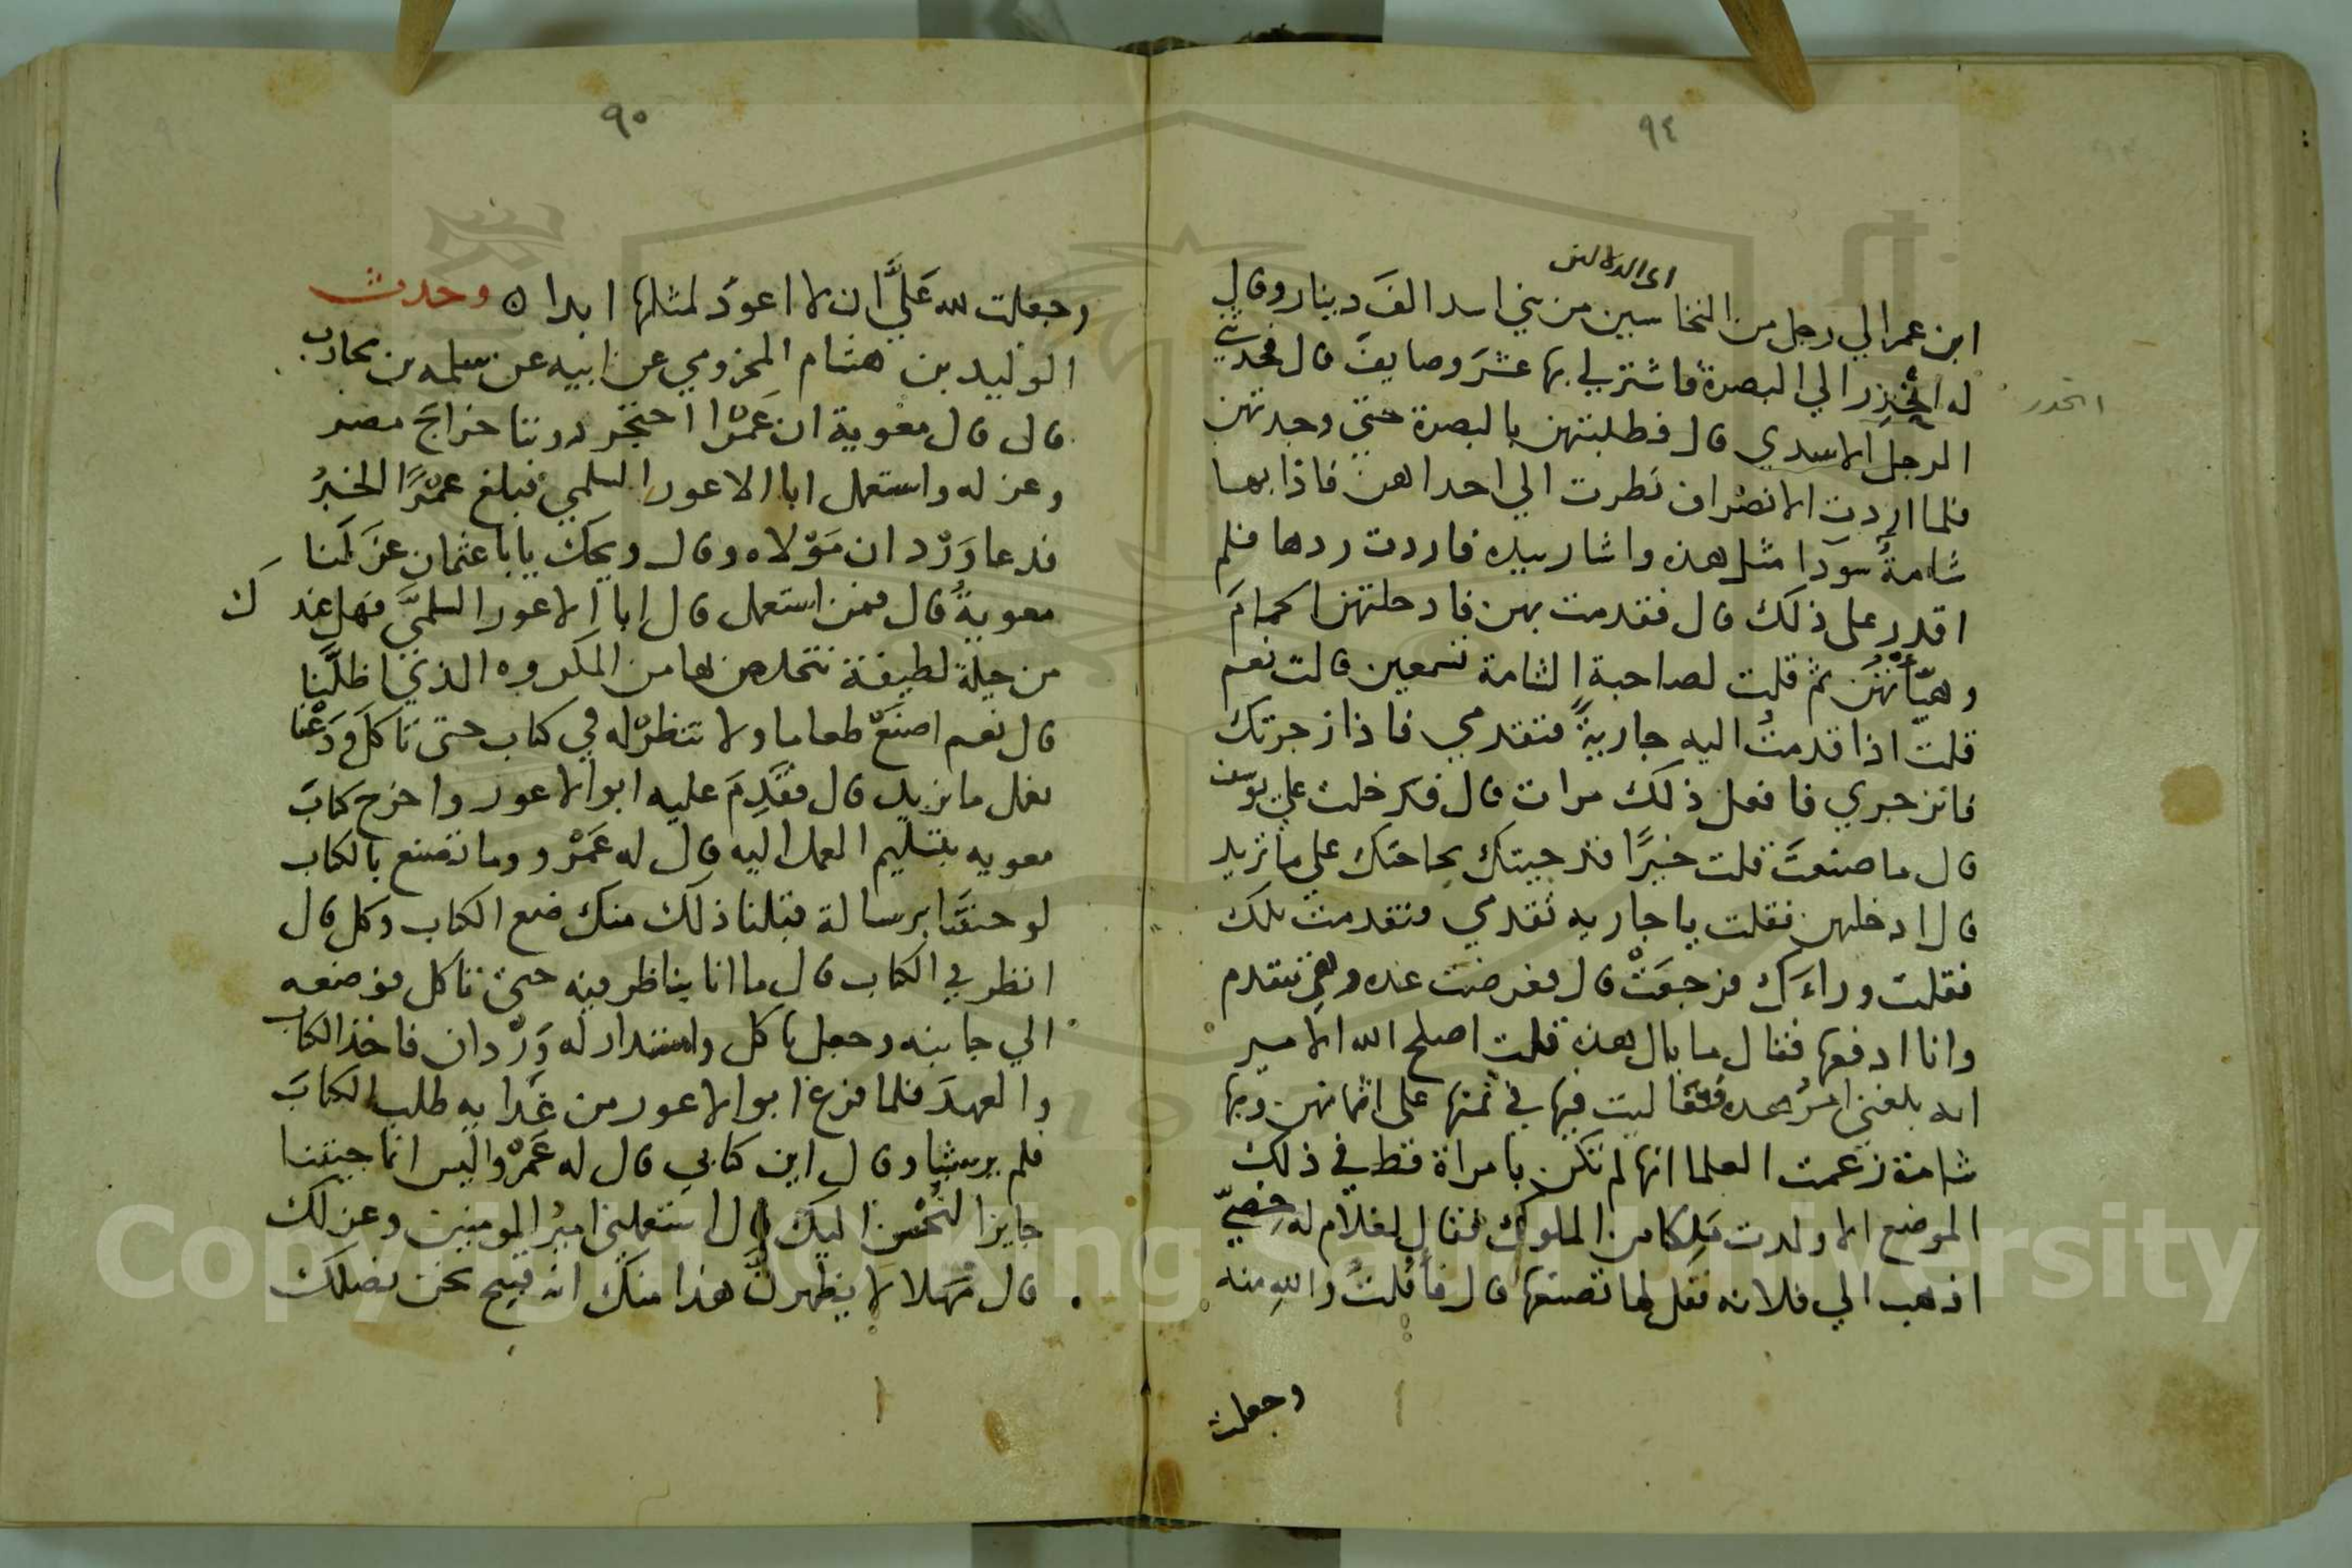 ٩٤
اى الدلالين
ابن عمر الي رجل من النخاسين من بني اسد الفَ دينار وقال
له انحَدِر الي البصرة فاشتر لي بها عشرَ وصايفَ قال فحدثني
انحدر
الرجل الاسدي قال فطلبتهن بالبصرة حتي وجدتهن
فلما اردت الانصراف نظرت الي احداهن فاذا بها
شامةٌ سودا مثل هذه واشار بيده فاردت ردها فلم
اقدر على ذلك قال فقدمت بهن فادخلتهن الحمامَ
وهيّأتهُنّ ثم قلت لصاحبة الشامة تسمعين قالت نعم
قلت اذا قدمتُ اليه جاريةً فتقدمي فاذا زجرتك
فانزجري فافعل ذلك مرات قال فدخلت علي يوسف
قال ما صنعتَ قلت خيرًا قد جيتك بحاجتك علي ما تريد
قال ادخلهن فقلت يا جاريه تقدمي فتقدمت تلك
فقلت وراءَك فرجعَتْ قال فعرضت عنده وهي تتقدم
وانا ادفعها فقال ما بال هذه قلت اصلح الله الامير
انه بلغني امرُ هذه فغاليت فيها في ثمنها على اثمانهن وبها
شامة زعمت العلما انها لم تكن بامراة قط في ذلك
الموضع الا ولدت مَلِكا من الملوك فقال لغلام له خصِيّ
اذهب الي فلانه فقل لها تصنعها قال فافلتُ واللهِ منه
وجعلت
٩٥
وجعلت لله عَليَّ ان لا اعودَ لمثلها ابدا ن وحدث
الوليد بن هشام المخزومي عن ابيه عن سلمه بن محارب
قال قال معوية ان عَمْرًا احتجر دوننا خراجَ مصر
وعزله واستعمل ابا الاعور السلمي فبلغ عمْرًا الخبرُ
فدعا وَرْدان مَوْلاه وقال ويحك يابا عثمان عزَلَنا
معويةُ قال فمن استعمل قال ابا الاعور السلميَّ فهل عند كَ
من حيلة لطيفة نتخلص بها من المكروه الذي اظلَّنا
قال نعم اصنَعْ طعاما ولا تنظرْ له في كتاب حتى تاكل ودَعْنا
نعمل ما نريد قال فقَدِمَ عليه ابو الاعور واخرج كتابَ
معويه بتسليم العمل اليه قال له عَمْرو وما تصنع بالكتاب
لو جئتَنا برسالة قبلنا ذلك منك ضع الكتاب وكل قال
انظر في الكتاب قال ما انا بناظر فيه حتي تاكل فوضعه
الي جانبه وجعل ياكل واستدار له وَرْدان فاخذ الكتاب
والعهدَ فلما فرغ ابو الاعور من غَدايه طلب الكتابَ
فلم ير شيا وقال اين كتابي قال له عَمْرو اليس انما جيتنا
جايزا لنُحْسِنَ اليك قال استعملني اميرُ المومنين وعزلك
قال مَهلا لا يظهرنَّ هذا منك انه قبيح نحن نصلك
Copyright © King Saud University